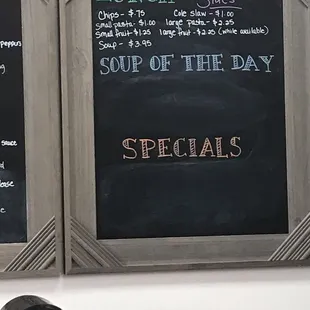 Sides
Chips - $.75 Cole slaw - $1.00
small pasta - $1.00 large pasta - $2.25
Small fruit - $1.25 large fruit - $2.25 (while available)
Soup - $3.95
SOUP OF THE DAY
SPECIALS
peppers
sauce